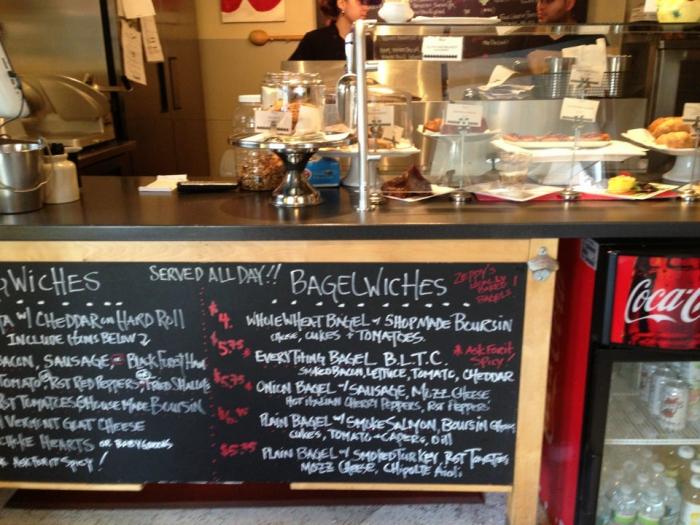 WICHES
SERVED ALL DAY!!
BAGELWICHES
ZEPPY'S
BAKED
BAGELS
TA W/ CHEDDAR ON HARD ROLL
INCLUDE ITEMS BELOW
BACON, SAUSAGE, BLACK FOREST HAM
TOMATO RST RED PEPPERS FRIED SHALLOTS
RST TOMATOES HOUSE MADE BOURSIN
VERMONT GOAT CHEESE
HEARTS OR BABY GREENS
ASK FOR IT SPICY!
$4. WHOLE WHEAT BAGEL W/ SHOP MADE BOURSIN
CHEESE, CUKES + TOMATOES.
$5.75 EVERYTHING BAGEL B.L.T.C.
SMOKED BACON, LETTUCE, TOMATO, CHEDDAR
* ASK FOR IT
SPICY!
$5.75 ONION BAGEL W/ SAUSAGE, MOZZ CHEESE
HOT ITALIAN CHERRY PEPPERS, RST PEPPERS
PLAIN BAGEL W/ SMOKE SALMON, BOURSIN CHEESE
CUKES, TOMATO + CAPERS, DILL
$5.75 PLAIN BAGEL W/ SMOKED TURKEY, RST TOMATOES
MOZZ CHEESE, CHIPOLTE AIOLI
Coca-C